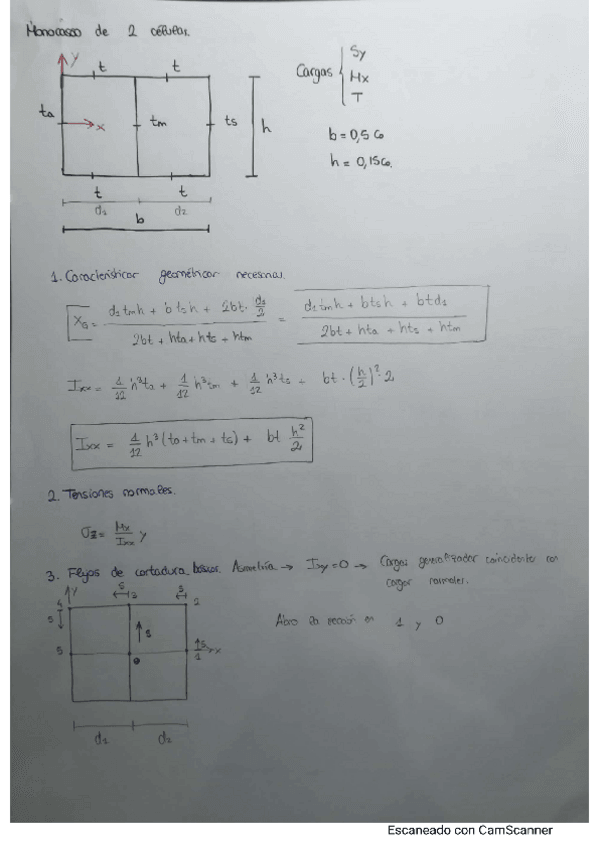 Monocasco de 2 células.
y
t t
Cargas { Sy
Mx
T
ta x tm ts h
b = 0,5 c
h = 0,15c
t t
d1 d2
b
1. Características geométricas necesarias.
XG = (d1 tm h + b ts h + 2bt · d1/2) / (2bt + hta + hts + htm) = (d1 tm h + bts h + btd1) / (2bt + hta + hts + htm)
Ixx = 1/12 h³ta + 1/12 h³tm + 1/12 h³ts + bt · (h/2)² · 2
Ixx = 1/12 h³ (ta + tm + ts) + bt h²/2
2. Tensiones normales.
σz = Mx/Ixx y
3. Flujos de cortadura básicos. → Ixy = 0 → Cargas coincidente con
cargas normales.
y s 3 s 2
4
s
s s
Abro la sección en 1 y 0
5 0 1 x
d1 d2
Escaneado con CamScanner